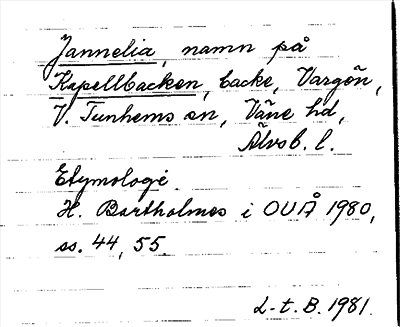 Jannelia, namn på
Kapellbacken, backe, Vargön,
V. Tunhems sn, Väne hd,
Älvsb. l.
Etymologi
H. Bartholmes i OUÅ 1980,
ss. 44, 55.
L-t. B. 1981.